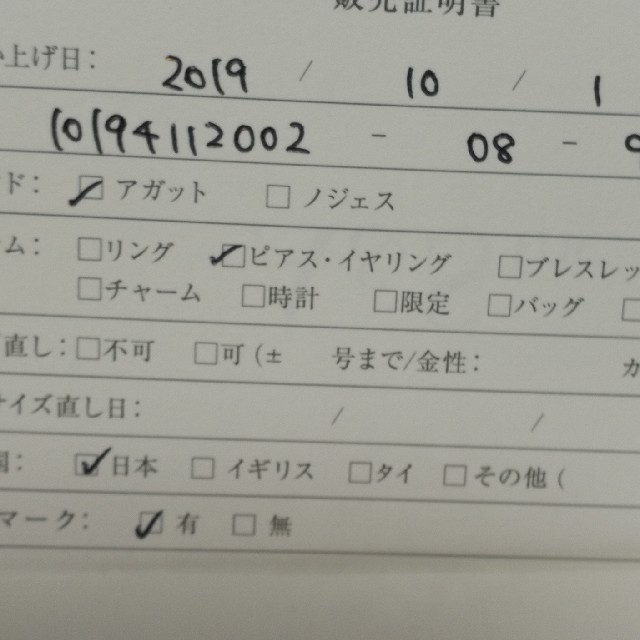 販売証明書
い上げ日： 2019 / 10 / 1
10194112002 - 08 -
ド： アガット □ ノジェス
ム： □リング ピアス・イヤリング □ブレスレッ
□チャーム □時計 □限定 □バッグ □
直し：□不可 □可（± 号まで/金性： カ
サイズ直し日： / /
国： 日本 □イギリス □タイ □その他（
マーク： 有 □無